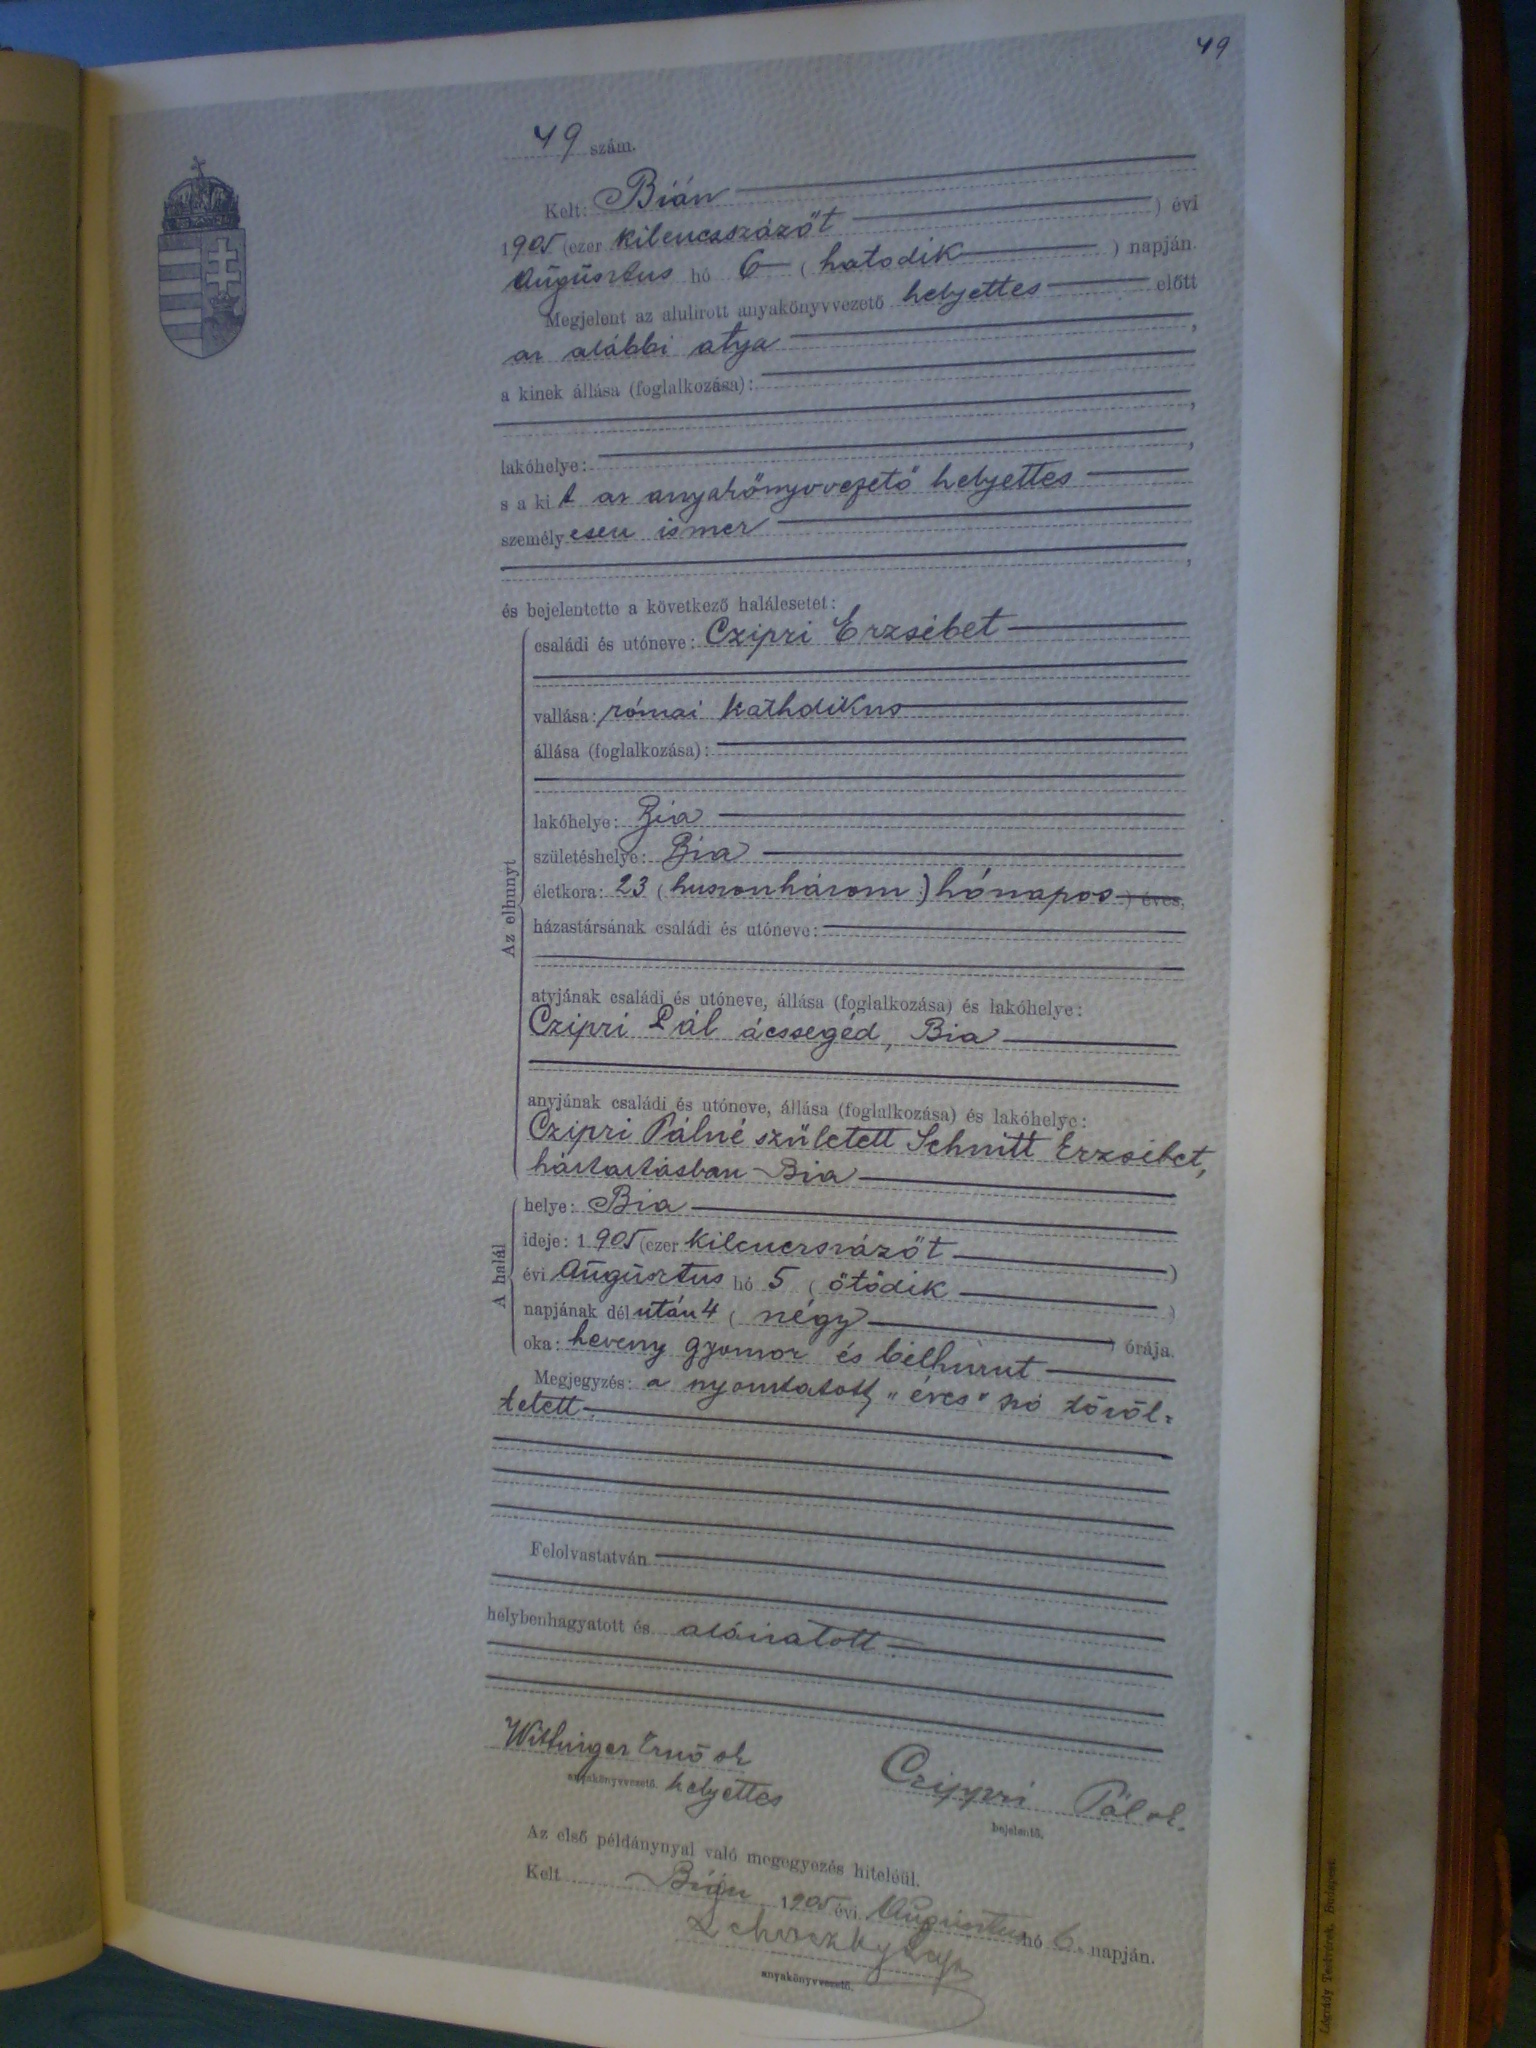 49
49 szám.
Kelt: Bián
1905 (ezer kilencszázöt ) évi
Augusztus hó 6 (hatodik ) napján.
Megjelent az alulirott anyakönyvvezető helyettes előtt
az alábbi atya ,
a kinek állása (foglalkozása):
,
lakóhelye: ,
s a kit az anyakönyvvezető helyettes
személyesen ismer
,
és bejelentette a következő halálesetet:
Az elhunyt
családi és utóneve: Czipri Erzsébet
vallása: római katholikus
állása (foglalkozása):
lakóhelye: Bia
születéshelye: Bia
életkora: 23 (huszonhárom) hónapos ) éves,
házastársának családi és utóneve:
atyjának családi és utóneve, állása (foglalkozása) és lakóhelye:
Czipri Pál ácssegéd, Bia
anyjának családi és utóneve, állása (foglalkozása) és lakóhelye:
Czipri Pálné született Schmitt Erzsébet,
háztartásban Bia
A halál
helye: Bia
ideje: 1905 (ezer kilencszázöt )
évi Augusztus hó 5 (ötödik )
napjának délután 4 (négy ) órája.
oka: heveny gyomor és bélhurut
Megjegyzés: a nyomtatott „éves" szó töröl-
tetett.
Felolvastatván
helybenhagyatott és aláiratott.
Ernő sk
anyakönyvvezető. helyettes
Czippri Pál sk.
bejelentő.
Az első példánynyal való megegyezés hiteléül.
Kelt Bián 1905 évi Augusztus hó 6. napján.
anyakönyvvezető.
Légrády Testvérek, Budapest